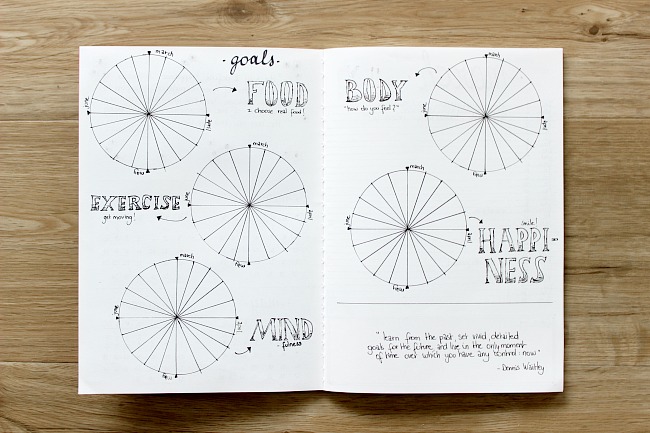 - goals -
march
april
may
june
FOOD
I choose real food!
march
april
may
june
EXERCISE
get moving!
march
april
may
june
MIND
- fulness
BODY
"how do you feel?"
april
may
june
march
april
may
june
smile!
HAPPI-
NESS
"learn from the past, set vivid, detailed
goals for the future, and live in the only moment
of time over which you have any control: now"
- Dennis Waitley